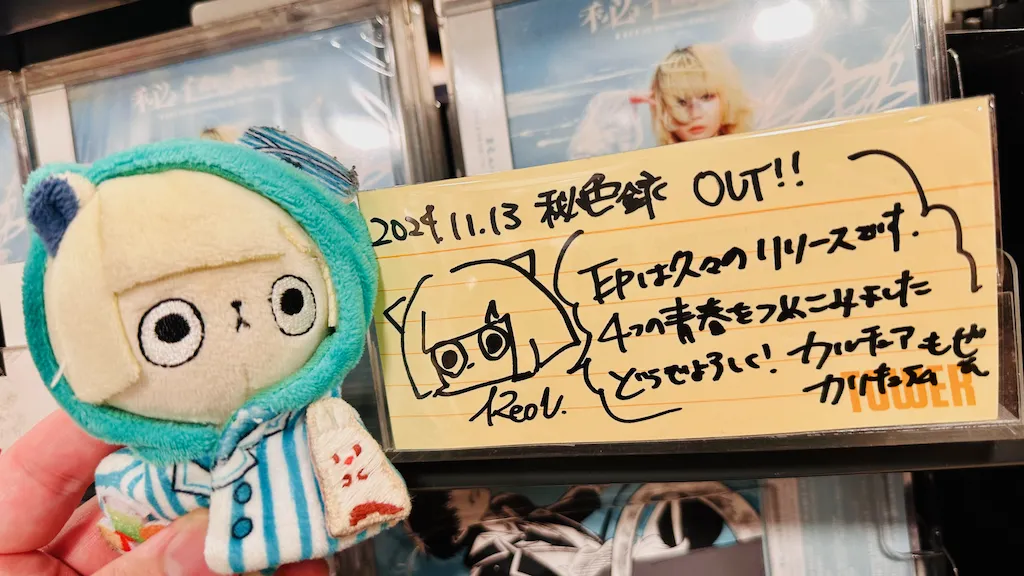 2024.11.13 秘色録 OUT!!
EPは久々のリリースです.
4つの青春をつめこみました
どうぞよろしく! カルチュア
Reol.
TOWER